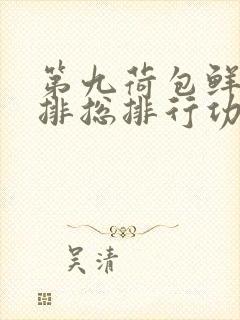 第九荷包鲜
排总排行功
吴清